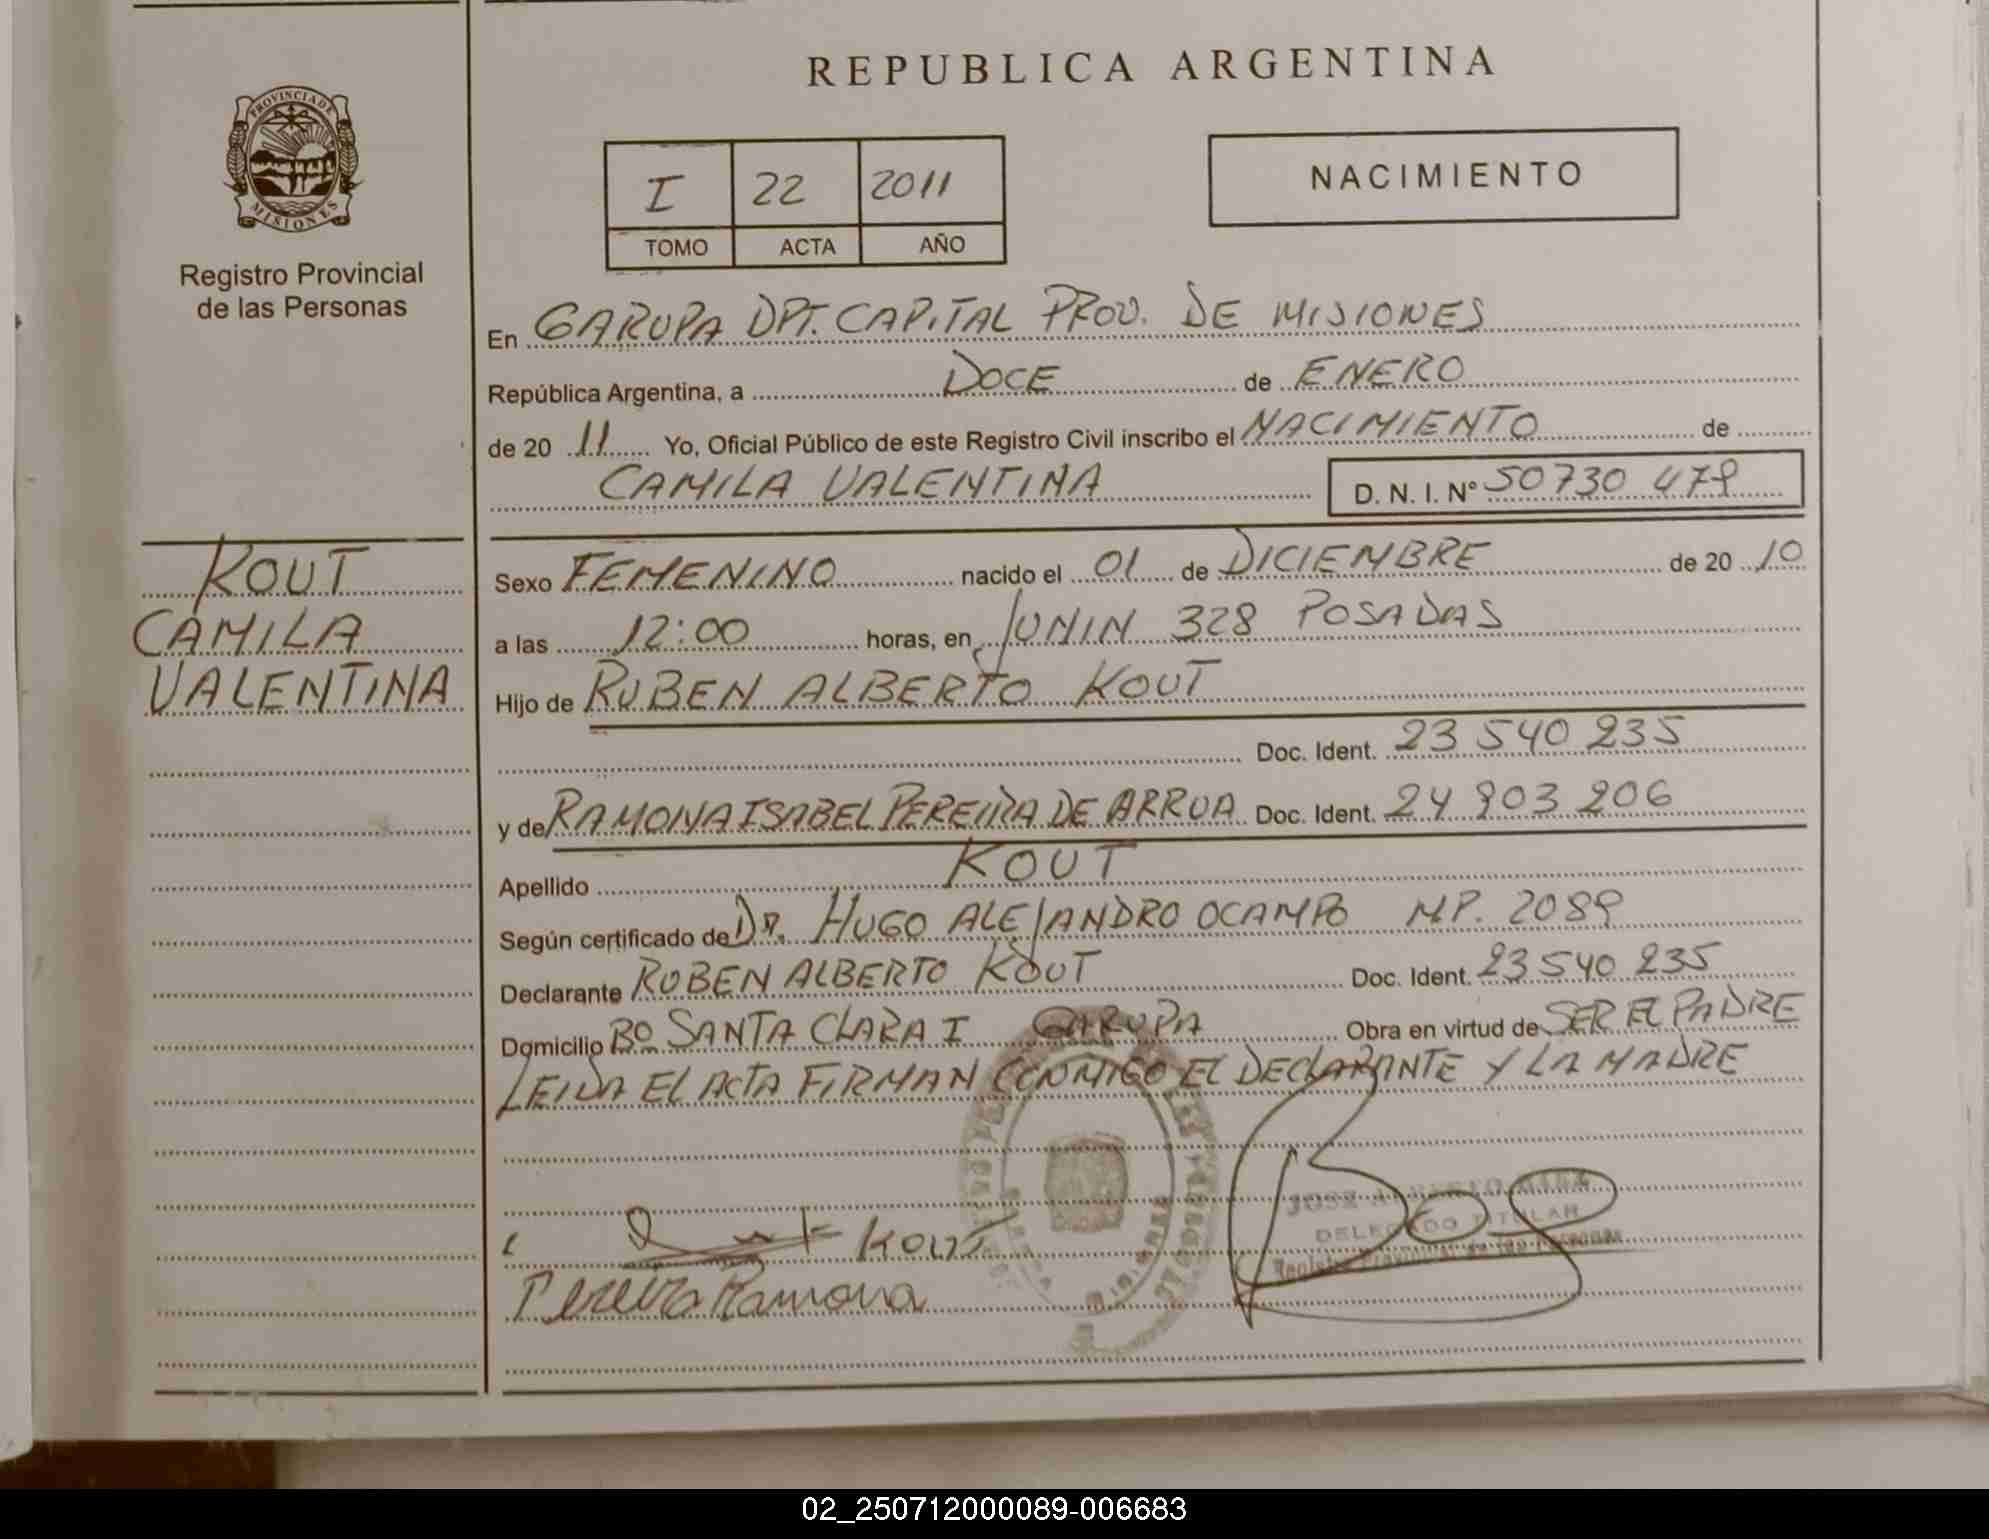 REPUBLICA ARGENTINA
PROVINCIA DE
MISIONES
Registro Provincial
de las Personas
I 22 2011
TOMO ACTA AÑO
NACIMIENTO
En GARUPA DPT. CAPITAL PROV. DE MISIONES
República Argentina, a DOCE de ENERO
de 20 11 Yo, Oficial Público de este Registro Civil inscribo el NACIMIENTO de
CAMILA VALENTINA D. N. I. Nº 50730 479
KOUT
CAMILA
VALENTINA
Sexo FEMENINO nacido el 01 de DICIEMBRE de 20 10
a las 12:00 horas, en JUNIN 328 POSADAS
Hijo de RUBEN ALBERTO KOUT
Doc. Ident. 23 540 235
y de RAMONA ISABEL PEREIRA DE ARRUA Doc. Ident. 24 903 206
Apellido KOUT
Según certificado de DR. HUGO ALEJANDRO OCAMPO MP. 2089
Declarante RUBEN ALBERTO KOUT Doc. Ident. 23 540 235
Domicilio Bº SANTA CLARA I GARUPA Obra en virtud de SER EL PADRE
LEIDA EL ACTA FIRMAN CONMIGO EL DECLARANTE Y LA MADRE
JOSE ALBERTO BAEZ
DELEGADO TITULAR
Registro Provincial de las Personas
KOUT
Pereira Ramona
02_250712000089-006683